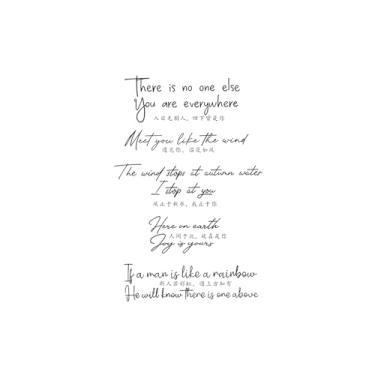 There is no one else
You are everywhere
入目无别人，四下皆是你
Meet you like the wind
遇见你，如风
The wind stops at autumn water
I stop at you
风止于秋水，我止于你
Here on earth
人间于此，欢喜是你
Joy is yours
If a man is like a rainbow
斯人若彩虹，遇上方知有
He will know there is one above